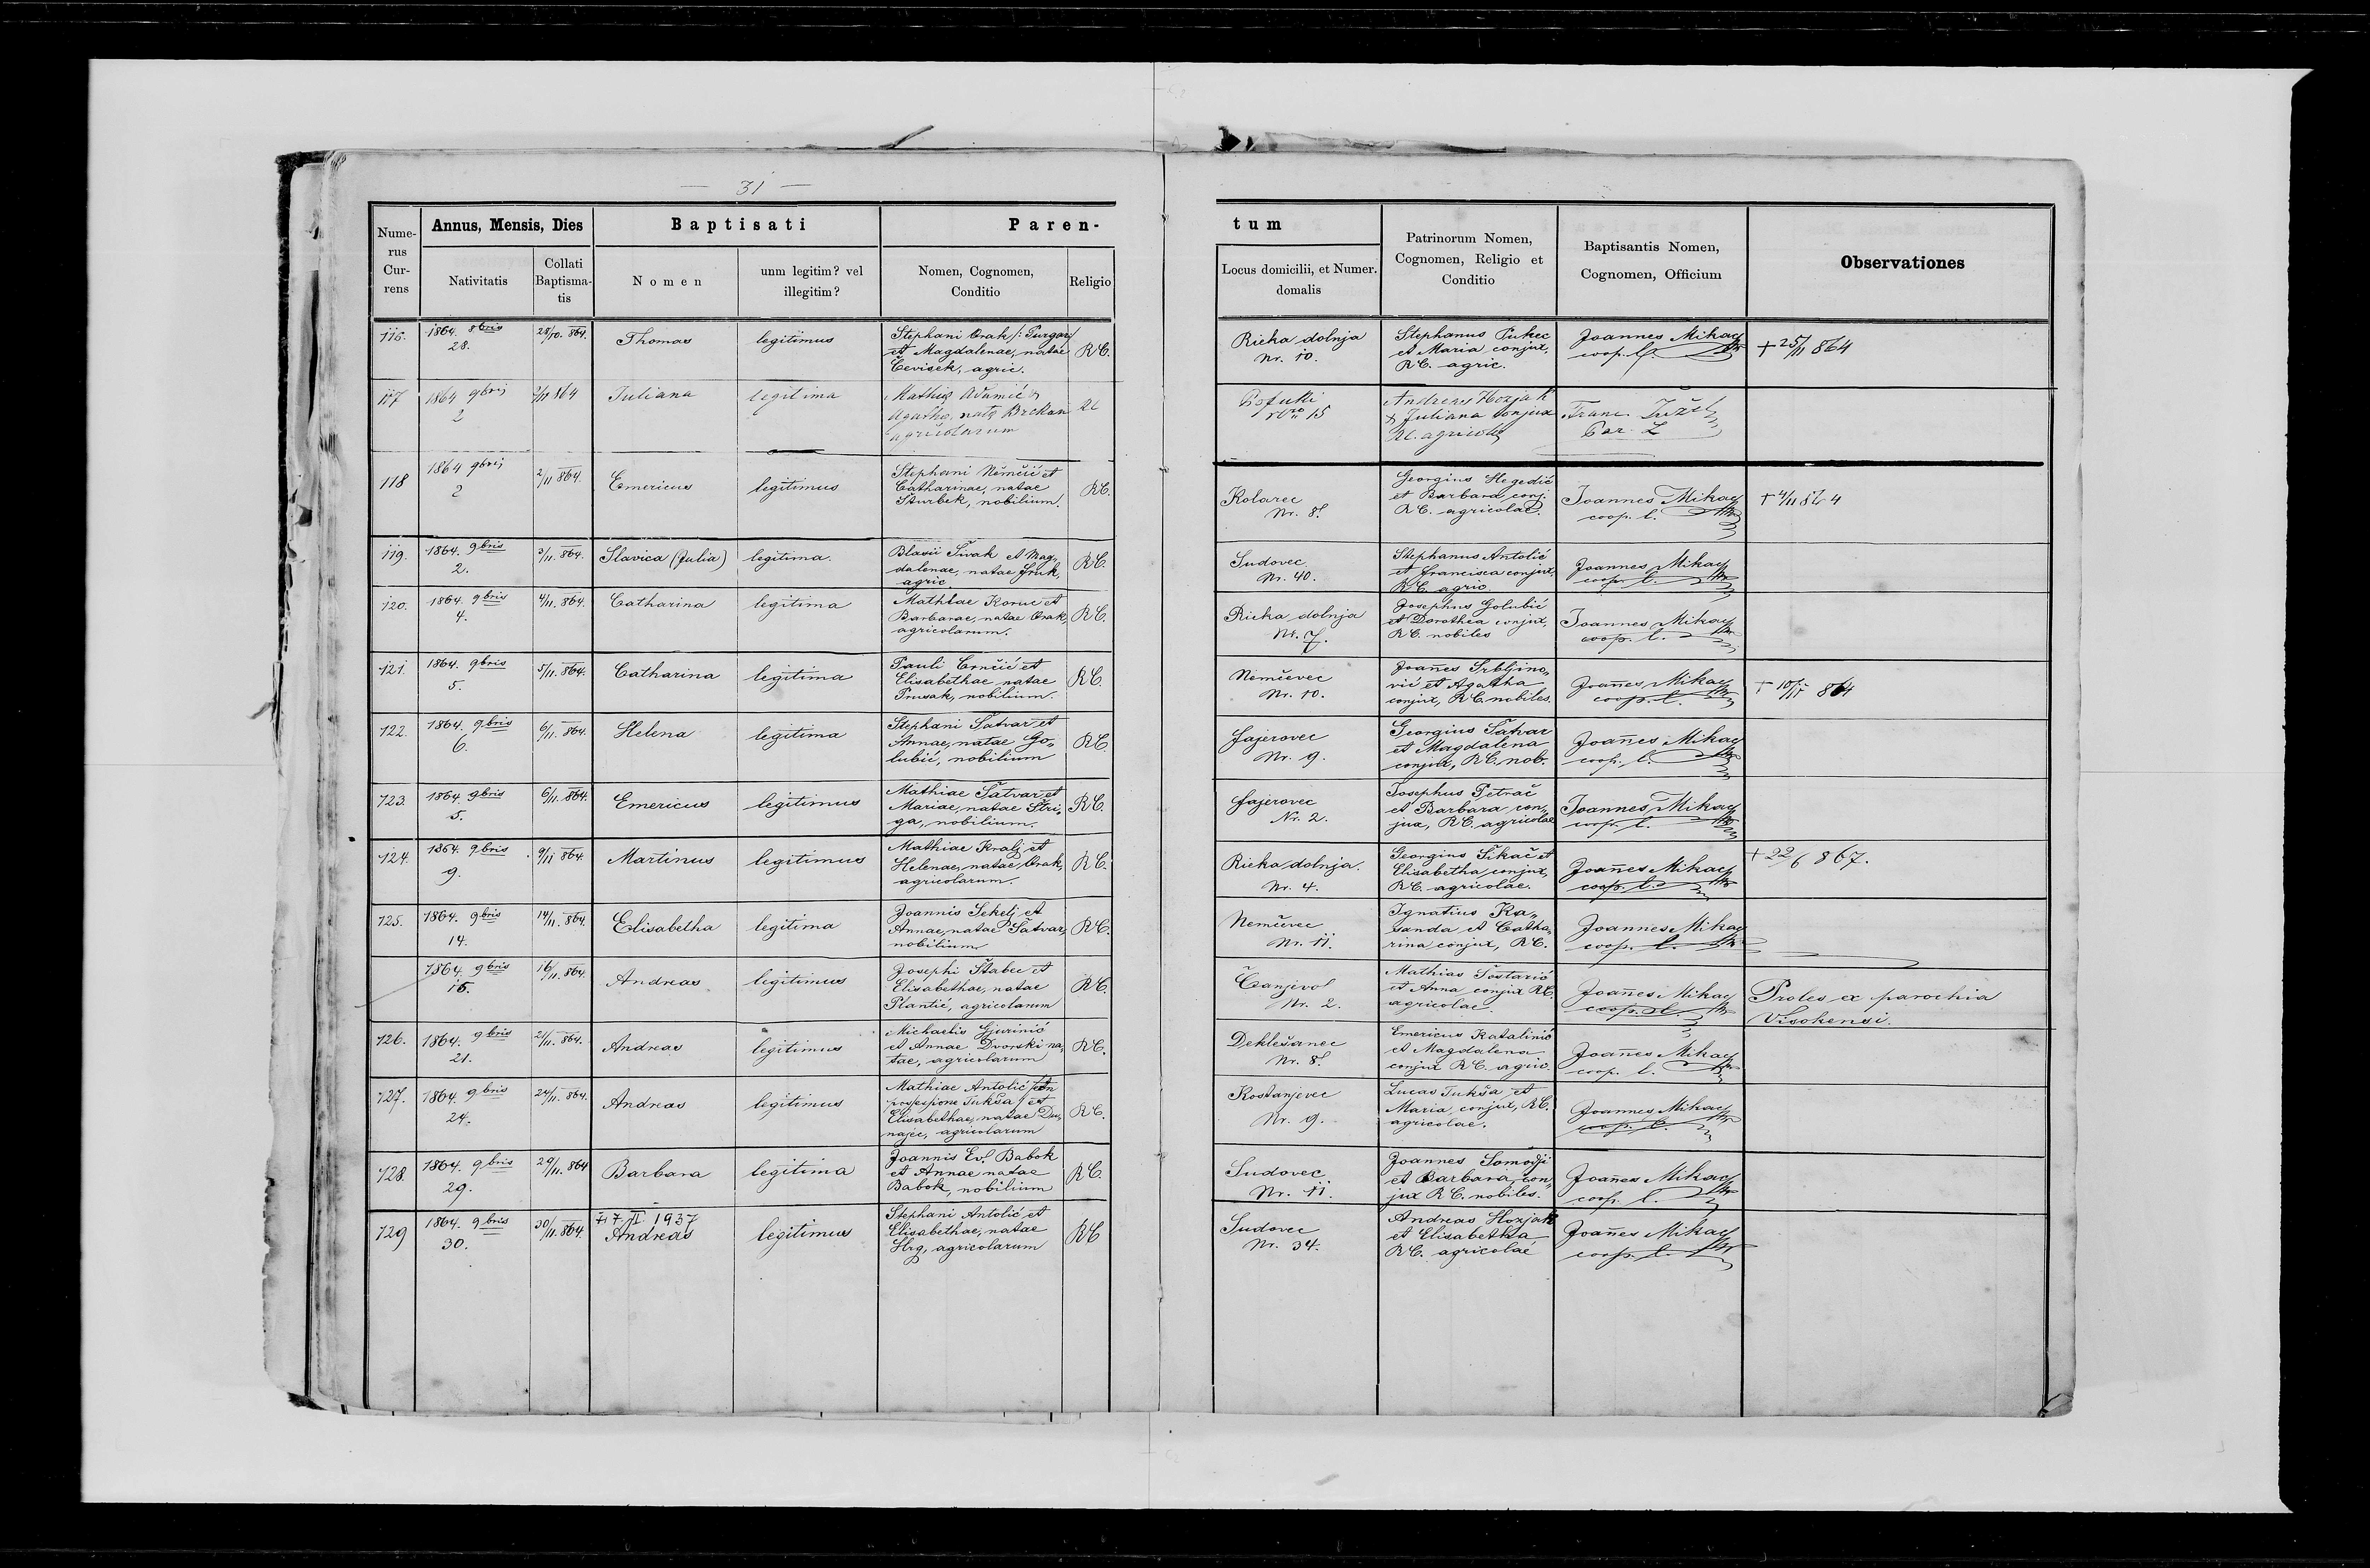 — 31 —
Nume-
rus
Cur-
rens
Annus, Mensis, Dies
Nativitatis
Collati
Baptisma-
tis
Baptisati
Nomen
unm legitim? vel
illegitim?
Paren-
Nomen, Cognomen,
Conditio
Religio
tum
Locus domicilii, et Numer.
domalis
Patrinorum Nomen,
Cognomen, Religio et
Conditio
Baptisantis Nomen,
Cognomen, Officium
Observationes
116.
1864. 8bris
28.
28/10. 864.
Thomas
legitimus
Stephani Orak /: Purgar/
et Magdalenae, natae
Čevisek, agric.
RC.
Rieka dolnja
Nr. 10.
Stephanus Pukec
et Maria conjux,
RC. agric.
Joannes Mikac
coop. l.
+ 25/11 864
117
1864 9bris
2
2/11 864
Juliana
legitima
Mathias Adamić &
Agatha, nata Brckan
agricolarum
RC
Botuki
Nro 15
Andreas Hozjak
& Juliana conjux
RC. agricola
Franc. Južel
Par. L
118
1864 9bris
2
2/11 864.
Emericus
legitimus
Stephani Némčić et
Catharinae, natae
Šturbek, nobilium.
RC.
Kolarec
Nr. 8.
Georgius Hegedić
et Barbara conj.
RC. agricolae.
Joannes Mikac
coop. l.
+ 4/11 864
119.
1864. 9bris
2.
3/11. 864.
Slavica (Julia)
legitima.
Blasii Sivak et Mag-
dalenae, natae Fruk,
agric.
RC.
Sudovec
Nr. 40.
Stephanus Antolić
et Francisca conjux,
RC. agric.
Joannes Mikac
coop. l.
120.
1864. 9bris
4.
4/11. 864.
Catharina
legitima
Mathiae Koruc et
Barbarae, natae Orak,
agricolarum.
RC.
Rieka dolnja
Nr. 7.
Josephus Golubić
et Dorothea conjux,
RC. nobiles
Joannes Mikac
coop. l.
121.
1864. 9bris
5.
5/11. 864.
Catharina
legitima
Pauli Crnčić et
Elisabethae natae
Prusak, nobilium.
RC.
Nemčevec
Nr. 10.
Joañes Srbljino-
vić et Agatha
conjux, RC. nobiles.
Joañes Mikac
coop. l.
+ 10/11 864
122.
1864. 9bris
6.
6/11. 864.
Helena
legitima
Stephani Šatvar et
Annae, natae Go-
lubić, nobilium
RC
Fajerovec
Nr. 9.
Georgius Šatvar
et Magdalena
conjux, RC. nob.
Joañes Mikac
coop. l.
123.
1864. 9bris
5.
6/11. 864.
Emericus
legitimus
Mathiae Šatvar et
Mariae, natae Stri-
ga, nobilium.
RC.
Fajerovec
Nr. 2.
Josephus Petrač
et Barbara con-
jux, RC. agricolae
Joannes Mikac
coop. l.
124.
1864. 9bris
9.
9/11 864.
Martinus
legitimus
Mathiae Kralj et
Helenae, natae Orak,
agricolarum.
RC.
Rieka dolnja.
Nr. 4.
Georgius Sikač et
Elisabetha conjux,
RC. agricolae.
Joañes Mikac
coop. l.
+ 22/6 867.
125.
1864. 9bris
14.
14/11. 864.
Elisabetha
legitima
Joannis Sekelj et
Annae, natae Šatvar,
nobilium
RC.
Nemčevec
Nr. 11.
Ignatius Ra-
sanda et Catha-
rina conjux, RC.
Joannes Mikac
coop. l.
1864. 9bris
15.
16/11. 864.
Andreas
legitimus
Josephi Štabec et
Elisabethae, natae
Plantić, agricolarum
RC.
Čanjevol
Nr. 2.
Mathias Šostarić
et Anna conjux RC.
agricolae.
Joañes Mikac
coop. l.
Proles ex parochia
Visokensi.
126.
1864. 9bris
21.
21/11. 864.
Andreas
legitimus
Michaelis Gjurinić
et Annae Dvorski na-
tae, agricolarum
RC.
Deklešanec
Nr. 8.
Emericus Katalinić
et Magdalena
conjux RC. agric.
Joañes Mikac
coop. l.
127.
1864. 9bris
24.
24/11. 864.
Andreas
legitimus
Mathiae Antolić
possessione Tukša/ et
Elisabethae, natae Du-
najec, agricolarum
RC.
Kostanjevec
Nr. 9.
Lucas Tukša et
Maria, conjux, RC.
agricolae.
Joannes Mikac
coop. l.
128.
1864. 9bris
29.
29/11. 864
Barbara
legitima
Joannis Ev. Babok
et Annae natae
Babok, nobilium
RC.
Sudovec
Nr. 11.
Joannes Somodji
et Barbara, con-
jux RC. nobiles.
Joañes Mikac
coop. l.
129
1864. 9bris
30.
30/11. 864.
+ 7 II 1937
Andreas
legitimus
Stephani Antolić et
Elisabethae, natae
Hrg, agricolarum
RC
Sudovec
Nr. 34.
Andreas Hozjak
et Elisabetha
RC. agricolae
Joañes Mikac
coop. l.